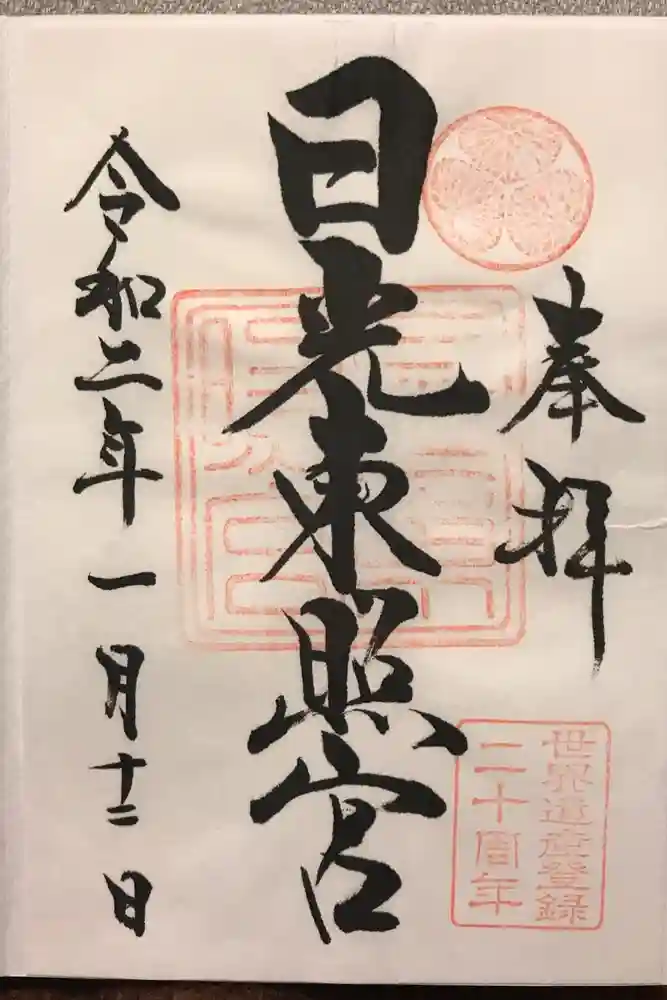 奉拝
日光東照宮
世界遺産登録
二十周年
令和二年一月十二日